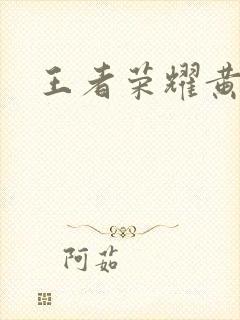 王者荣耀黄
阿茹